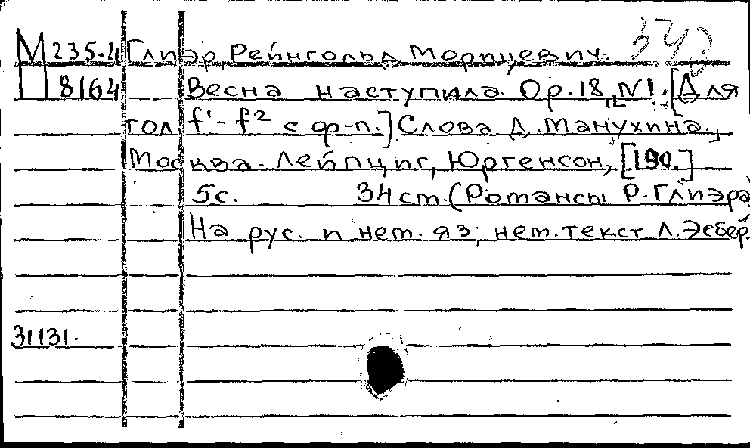 М 235-4 Глиэр Рейнгольд Морицевич. 342
П 8164 Весна наступила. Op. 18, №1. [Для
гол f¹ - f² с ф-п.] Слова Д. Манухина.,
Москва - Лейпциг, Юргенсон, [190.]
5с. 34cm. (Романсы Р. Глиэра)
На рус. и нем. яз; нем. текст Л. Эсбер.
31131.